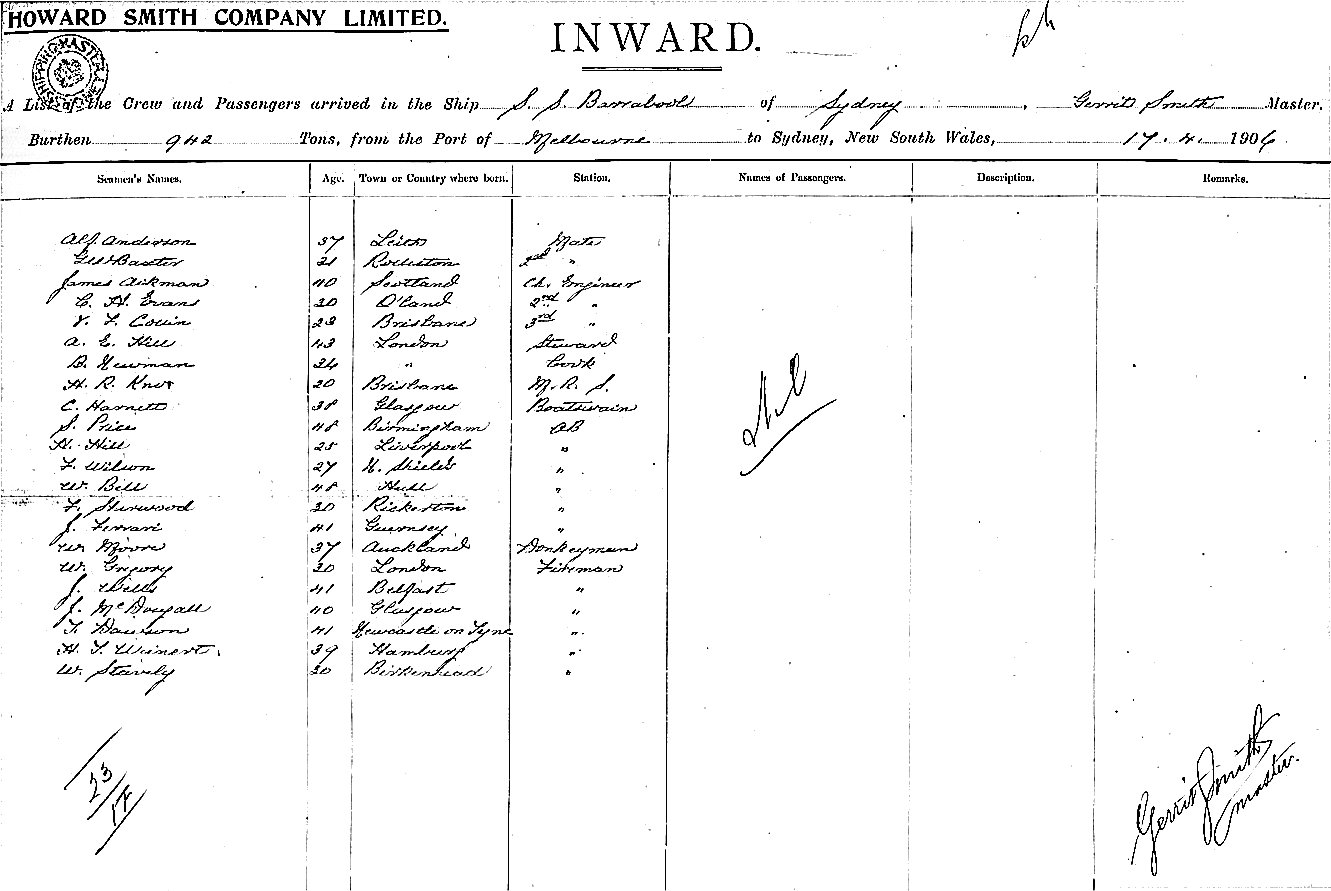 HOWARD SMITH COMPANY LIMITED.
INWARD.
SHIPPING MASTER
A List of the Crew and Passengers arrived in the Ship S. S. Barrabool of Sydney, Gerrit Smith Master.
Burthen 942 Tons, from the Port of Melbourne to Sydney, New South Wales, 17. 4. 1906
Seamen's Names. Age. Town or Country where born. Station. Names of Passengers. Description. Remarks.
Alf. Anderson 37 Leith Mate
Geo Baxter Rolleston 2nd "
James Aikman 40 Scotland Ch. Engineer
C. H. Evans 30 Q'land 2nd "
Brisbane 3rd "
A. E. Hill 43 London Steward
B. Newman 24 " Cook
H. R. Knox 20 Brisbane M. R. S.
C. Harnett 38 Glasgow Boatswain
S. Price 48 Birmingham AB
H. Hill 25 Liverpool "
F. Wilson 27 N. Shields "
W. Bell 48 Hull "
F. Sherwood 30 Rickerton "
J. Ferrari 41 Guernsey "
W. Moore 37 Auckland Donkeyman
W. Grigory 30 London Fireman
J. Wells 41 Belfast "
J. McDougall 40 Glasgow "
T. Dawson 41 Newcastle on Tyne "
H. T. Weinert. 39 Hamburg "
W. Stavely 30 Birkenhead "
Nil
23/
Gerrit Smith
Master.